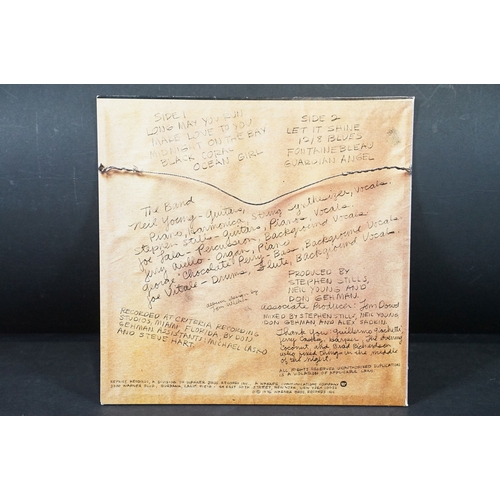 SIDE 1
LONG MAY YOU RUN
MAKE LOVE TO YOU
MIDNIGHT ON THE BAY
BLACK CORAL
OCEAN GIRL
SIDE 2
LET IT SHINE
12/8 BLUES
FONTAINEBLEAU
GUARDIAN ANGEL
The Band
Neil Young - Guitars, String Synthesizer, Vocals.
Piano, Harmonica,
Stephen Stills - Guitars, Piano, Vocals.
Joe Lala - Percussion, Background Vocals
Jerry Aiello - Organ, Piano
George "Chocolate" Perry - Bass, Background Vocals.
Joe Vitale - Drums, Flute, Background Vocals
Album design by
Tom Wilkes
PRODUCED BY
STEPHEN STILLS,
NEIL YOUNG AND
DON GEHMAN.
Associate Producer: Tom Dowd
MIXED BY STEPHEN STILLS, NEIL YOUNG,
DON GEHMAN AND ALEX SADKIN
RECORDED AT CRITERIA RECORDING
STUDIOS MIAMI FLORIDA BY DON
GEHMAN ASSISTANTS: MICHAEL LASKO
AND STEVE HART
Thank You Guillermo
Coconut and Brad Richardson
who fixed things in the middle
of the night.
ALL RIGHTS RESERVED UNAUTHORIZED DUPLICATION
IS A VIOLATION OF APPLICABLE LAWS
REPRISE RECORDS, A DIVISION OF WARNER BROS. RECORDS INC. A WARNER COMMUNICATIONS COMPANY
© 1976 WARNER BROS. RECORDS INC.